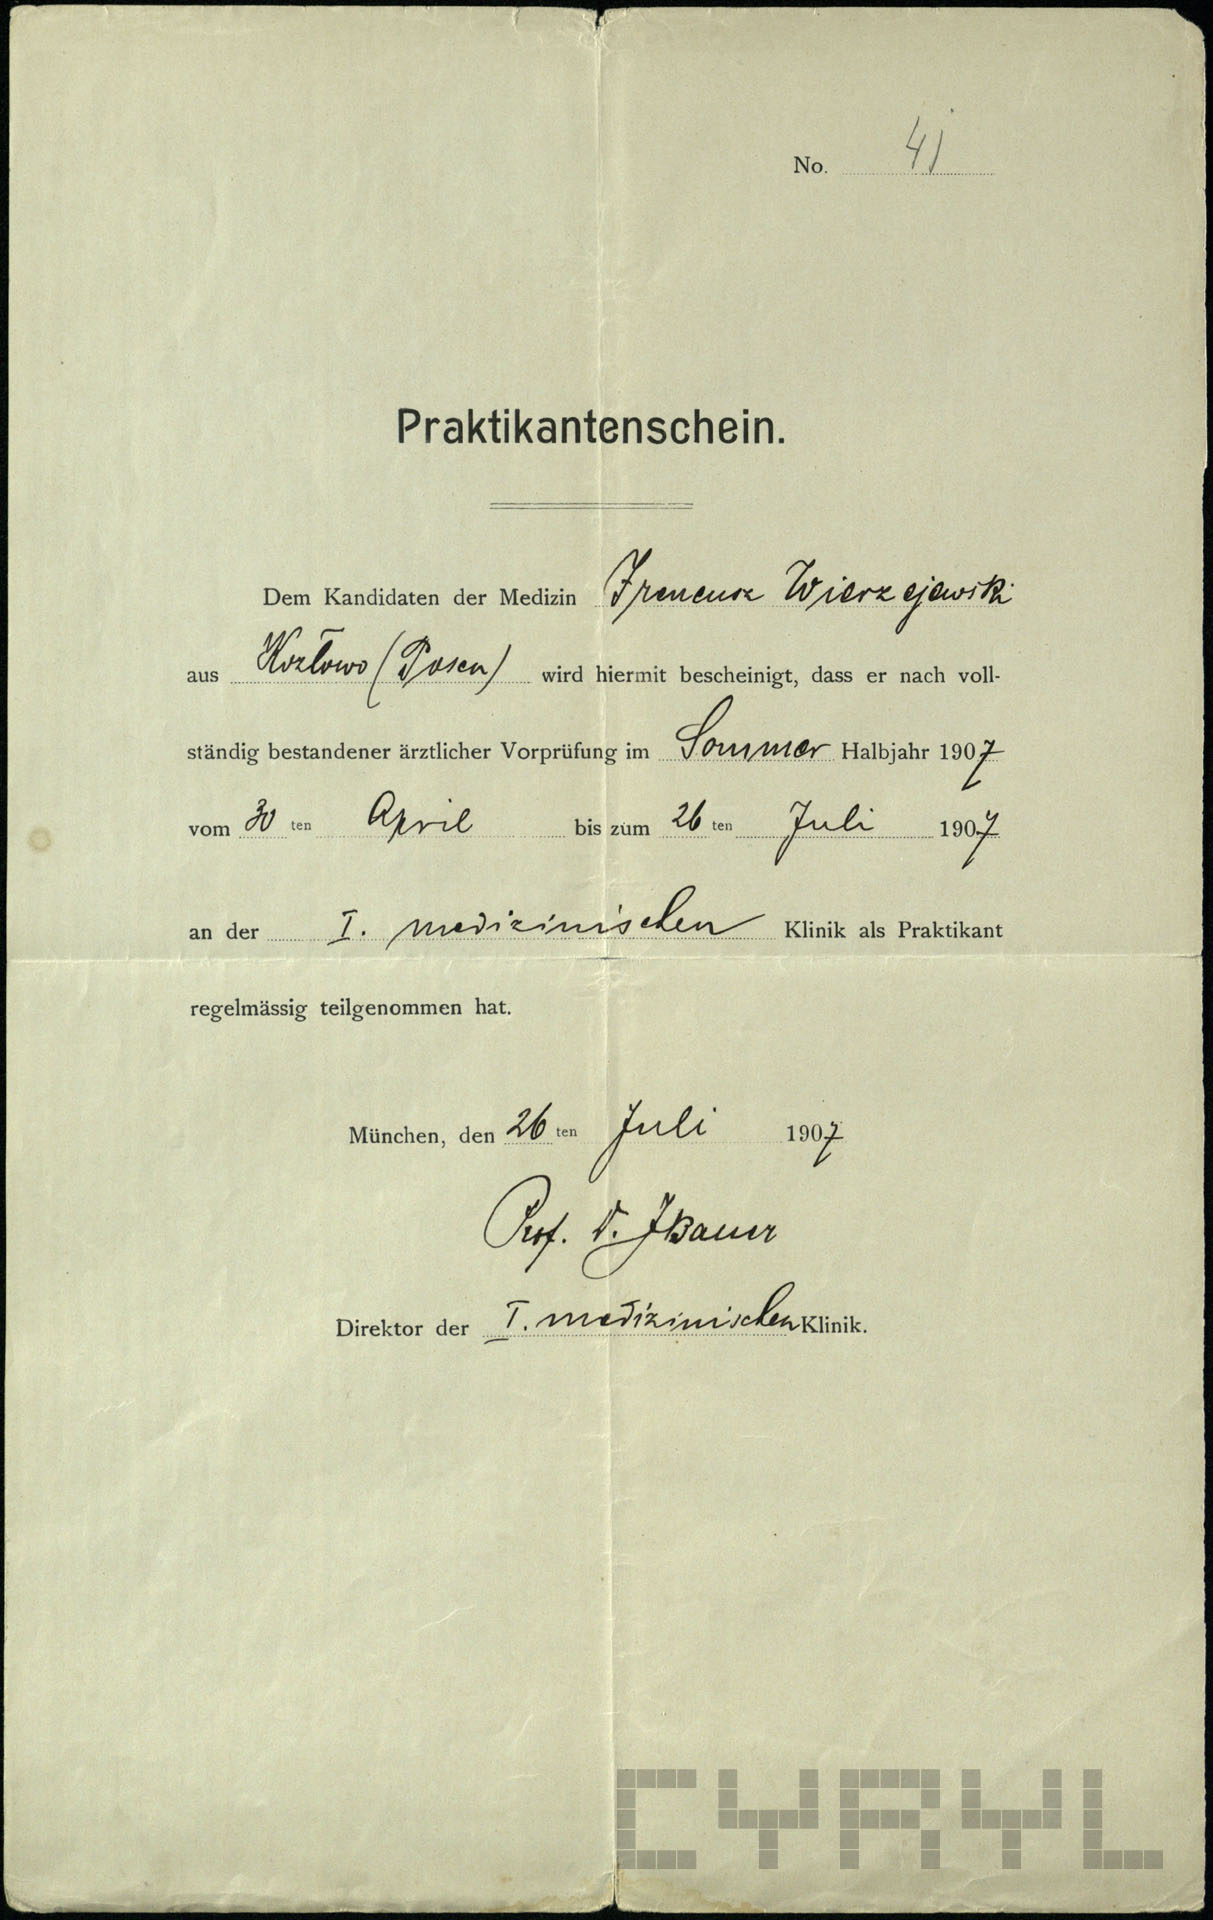 No. 41
Praktikantenschein.
Dem Kandidaten der Medizin Ireneusz Wierzejewski
aus Kozłowo (Posen) wird hiermit bescheinigt, dass er nach voll-
ständig bestandener ärztlicher Vorprüfung im Sommer Halbjahr 1907
vom 30 ten April bis zum 26 ten Juli 1907
an der I. medizinischen Klinik als Praktikant
regelmässig teilgenommen hat.
München, den 26 ten Juli 1907
Prof. D. J Bauer
Direktor der I. medizinischen Klinik.
CYRYL